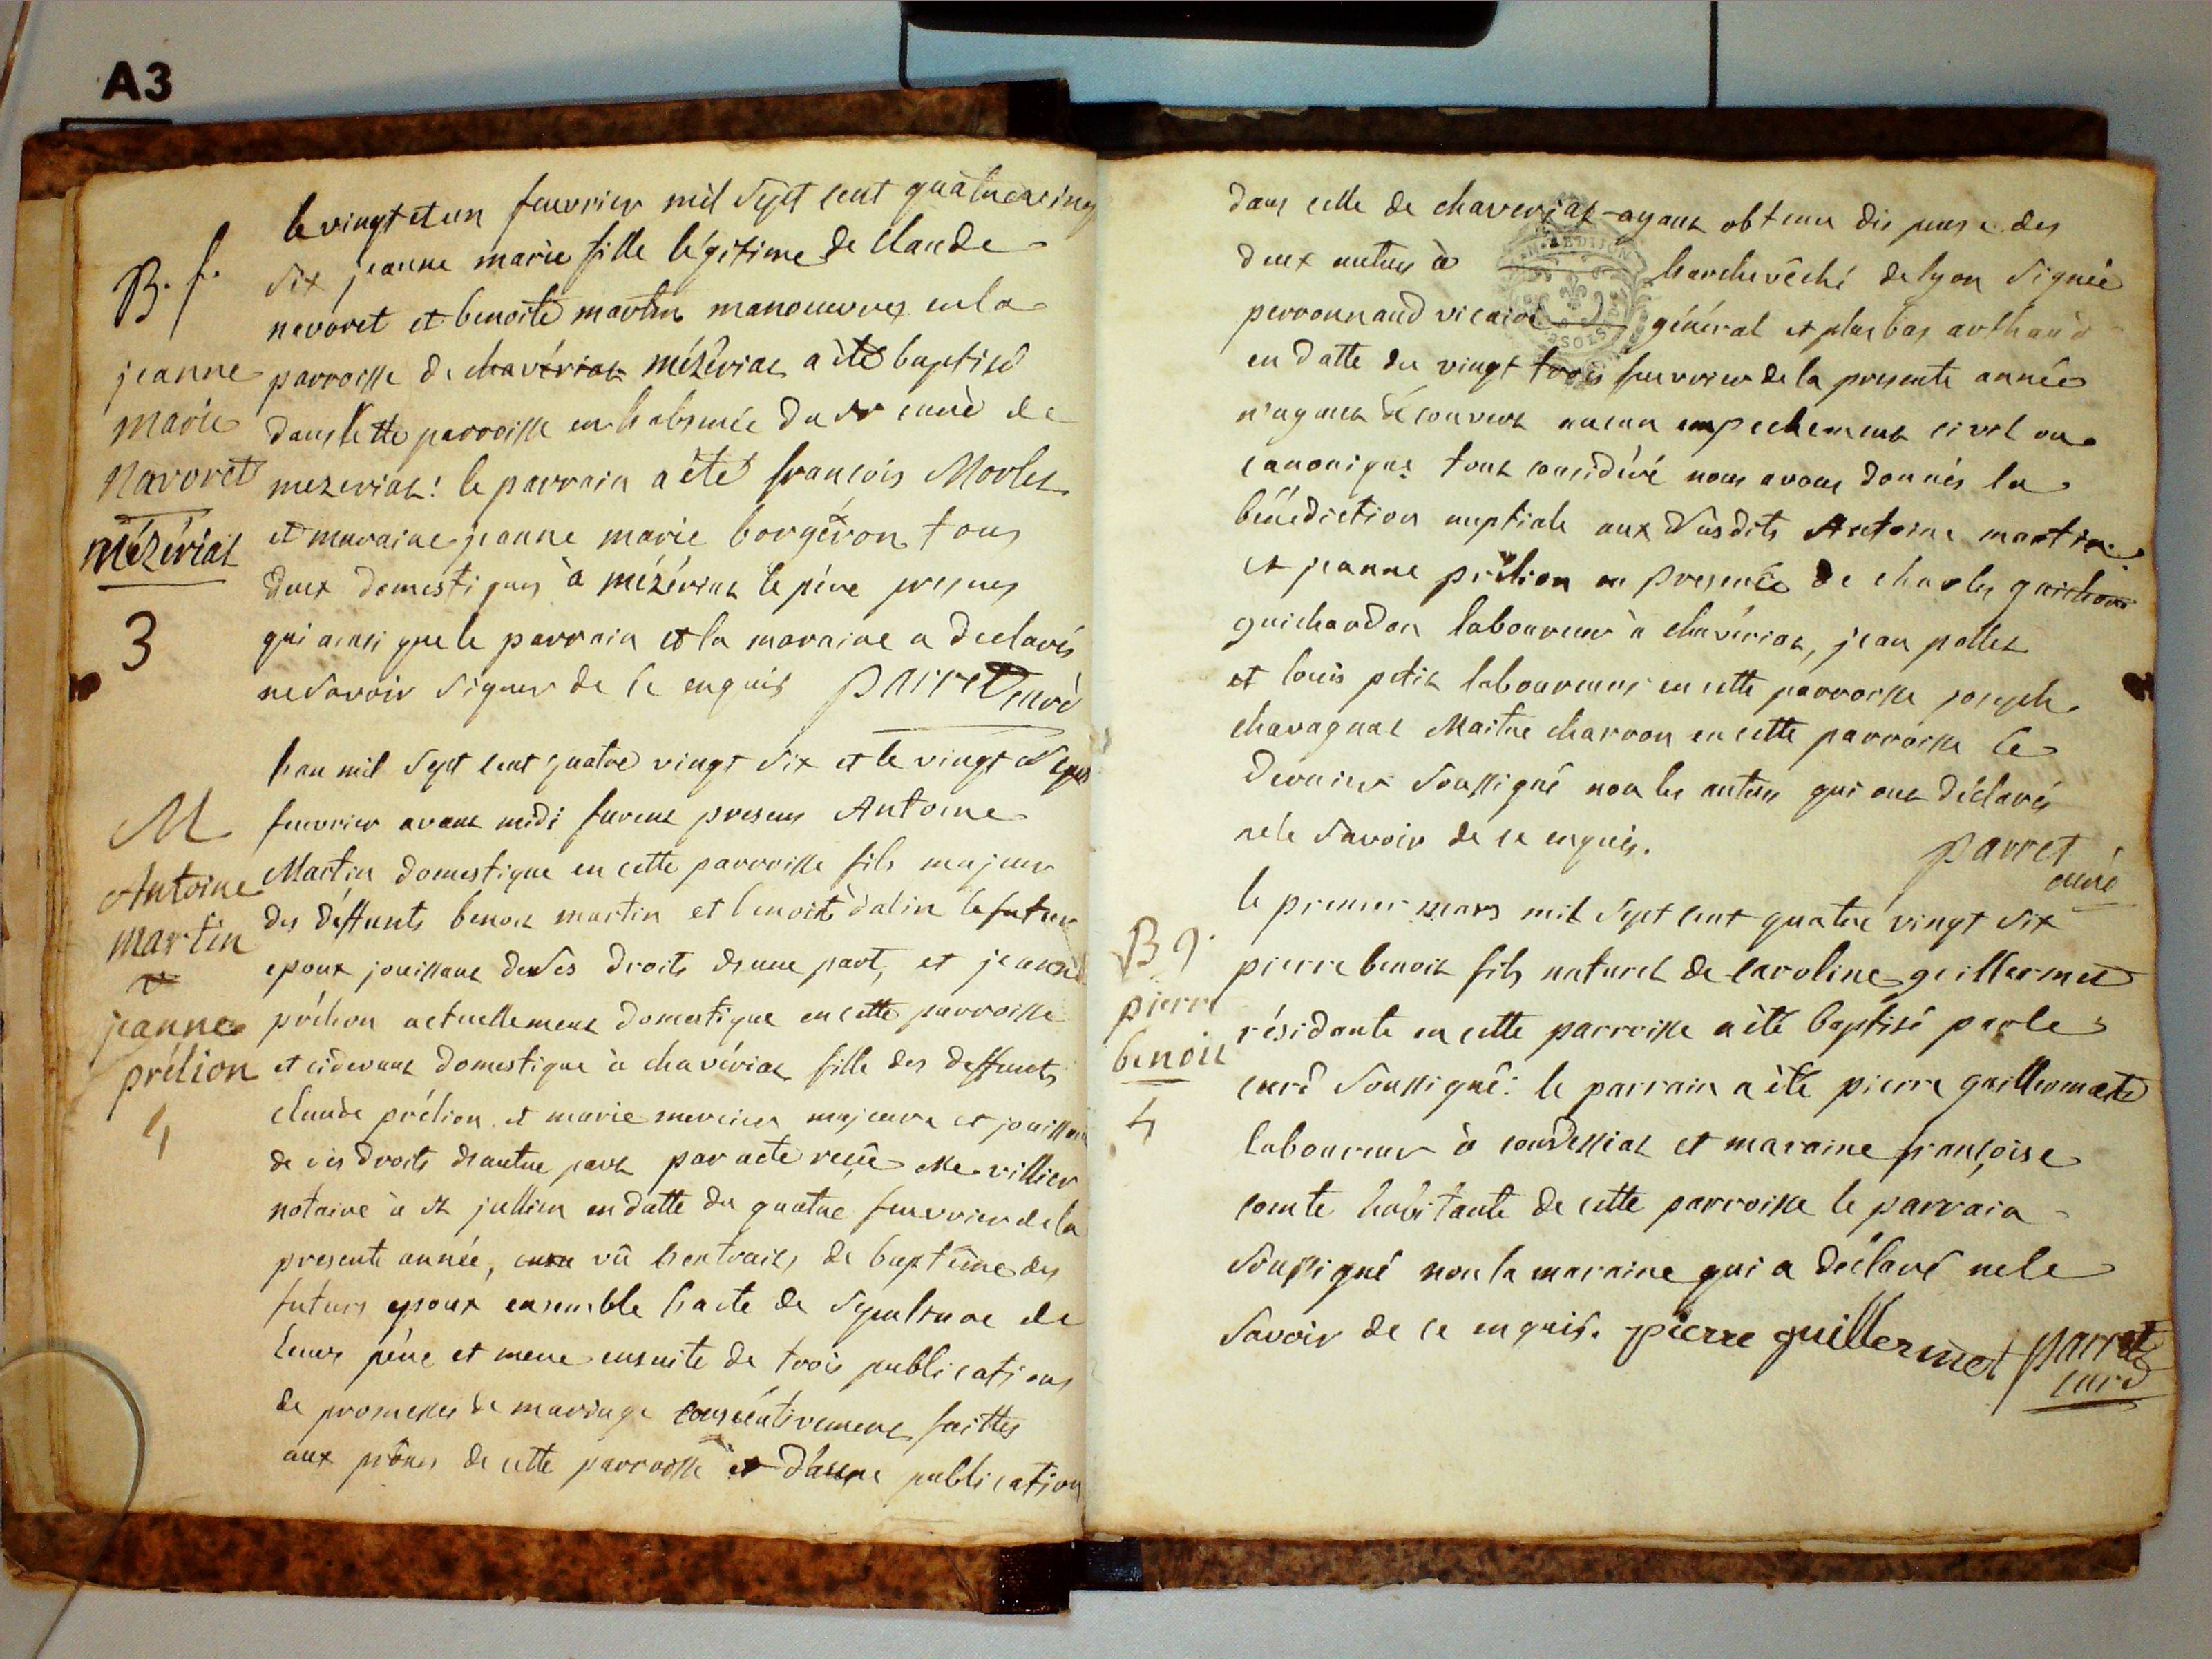 A3
B. f.
jeanne
marie
navoret
mézériat
3
le vingt et un feuvrier mil Sept cent quatre ving
Six jeanne marie fille légitime de Claude
navoret et benoite martin manoeuvres en la
parroisse de chavériat mézériat a èté baptisé
dans cette parroisse en l'absence du Sr curé de
mezeriat: le parrain a èté françois Morlet
et maraine jeanne marie borgeron tous
deux domestiques à mézériat le père present
qui ainsi que le parrain et la maraine a declarés
ne Savoir Signer de ce enquis parret curé
M
Antoine
martin
&
jeanne
prélion
4
l'an mil Sept cent quatre vingt Six et le vingt Sept
feuvrier avant midi furent presens Antoine
Martin domestique en cette parroisse fils majeur
des deffunts benoit martin et benoite dalin le futur
epoux jouissant de Ses droits d'une part, et jeanne
prélion actuellement domestique en cette parroisse
et cidevant domestique à chavériat fille des deffunts
claude prélion et marie mercier majeure et jouissante
de ses droits d'autre part par acte reçû Me villier
notaire à st jullien en datte du quatre feuvrier de la
presente année, vû l'extraits de baptême des
futurs epoux ensemble l'acte de Sepulture de
leurs père et mere ensuite de trois publications
de promesses de mariage consécutivement faittes
aux prônes de cette parroisse et d'une publication
dans celle de chaveriat ayant obtenu dispense des
deux autres à l'archevêché de lyon Signée
perronnaud vicaire général et plus bas arthaud
en datte du vingt trois feuvrier de la presente année
n'ayant découvert aucun empechement civil ou
canonique tout considéré nous avons donnés la
bénédiction nuptiale aux Susdits Antoine martin
et jeanne prélion en presence de charles guichon
guichardon laboureur à chavériat, jean pollet
et louis petit laboureurs en cette parroisse joseph
chavagnat Maitre charron en cette parroisse le
dernier Soussigné non les autres qui ont déclarés
ne le Savoir de ce enquis.
parret
curé
B g.
pierre
benoit
4
le premier mars mil Sept cent quatre vingt Six
pierre benoit fils naturel de caroline guillermet
résidante en cette parroisse a èté baptisé par le
curé Soussigné: le parrain a èté pierre guillermet
laboureur à condessiat et maraine françoise
comte habitante de cette parroisse le parrain
Soussigné non la maraine qui a déclaré ne le
Savoir de ce enquis. pierre guillermet parret
curé